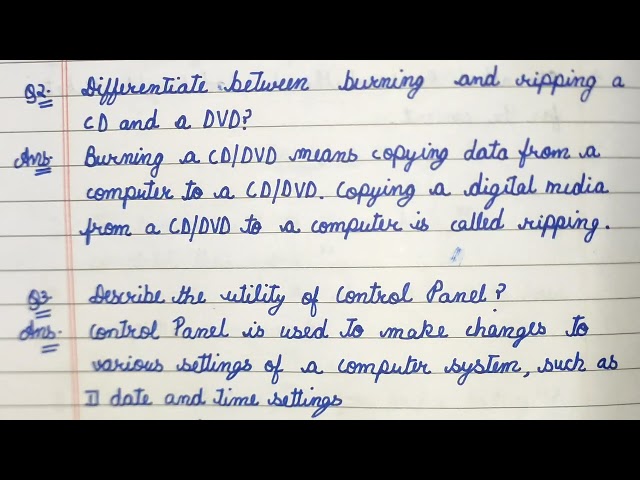 Q2. Differentiate between burning and ripping a
CD and a DVD?
Ans. Burning a CD/DVD means copying data from a
computer to a CD/DVD. Copying a digital media
from a CD/DVD to a computer is called ripping.
Q3 Describe the utility of Control Panel?
Ans. Control Panel is used to make changes to
various settings of a computer system, such as
I) date and time settings